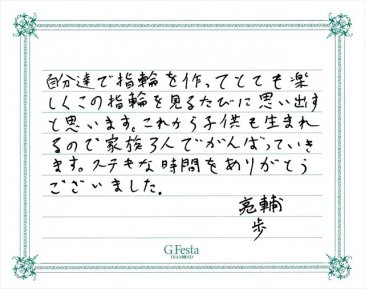 自分達で指輪を作ってとても楽
しくこの指輪を見るたびに思い出す
と思います。これから子供も生まれ
るので家族3人でがんばっていき
ます。ステキな時間をありがとう
ございました。
亮輔
歩
G.Festa
DIAMOND